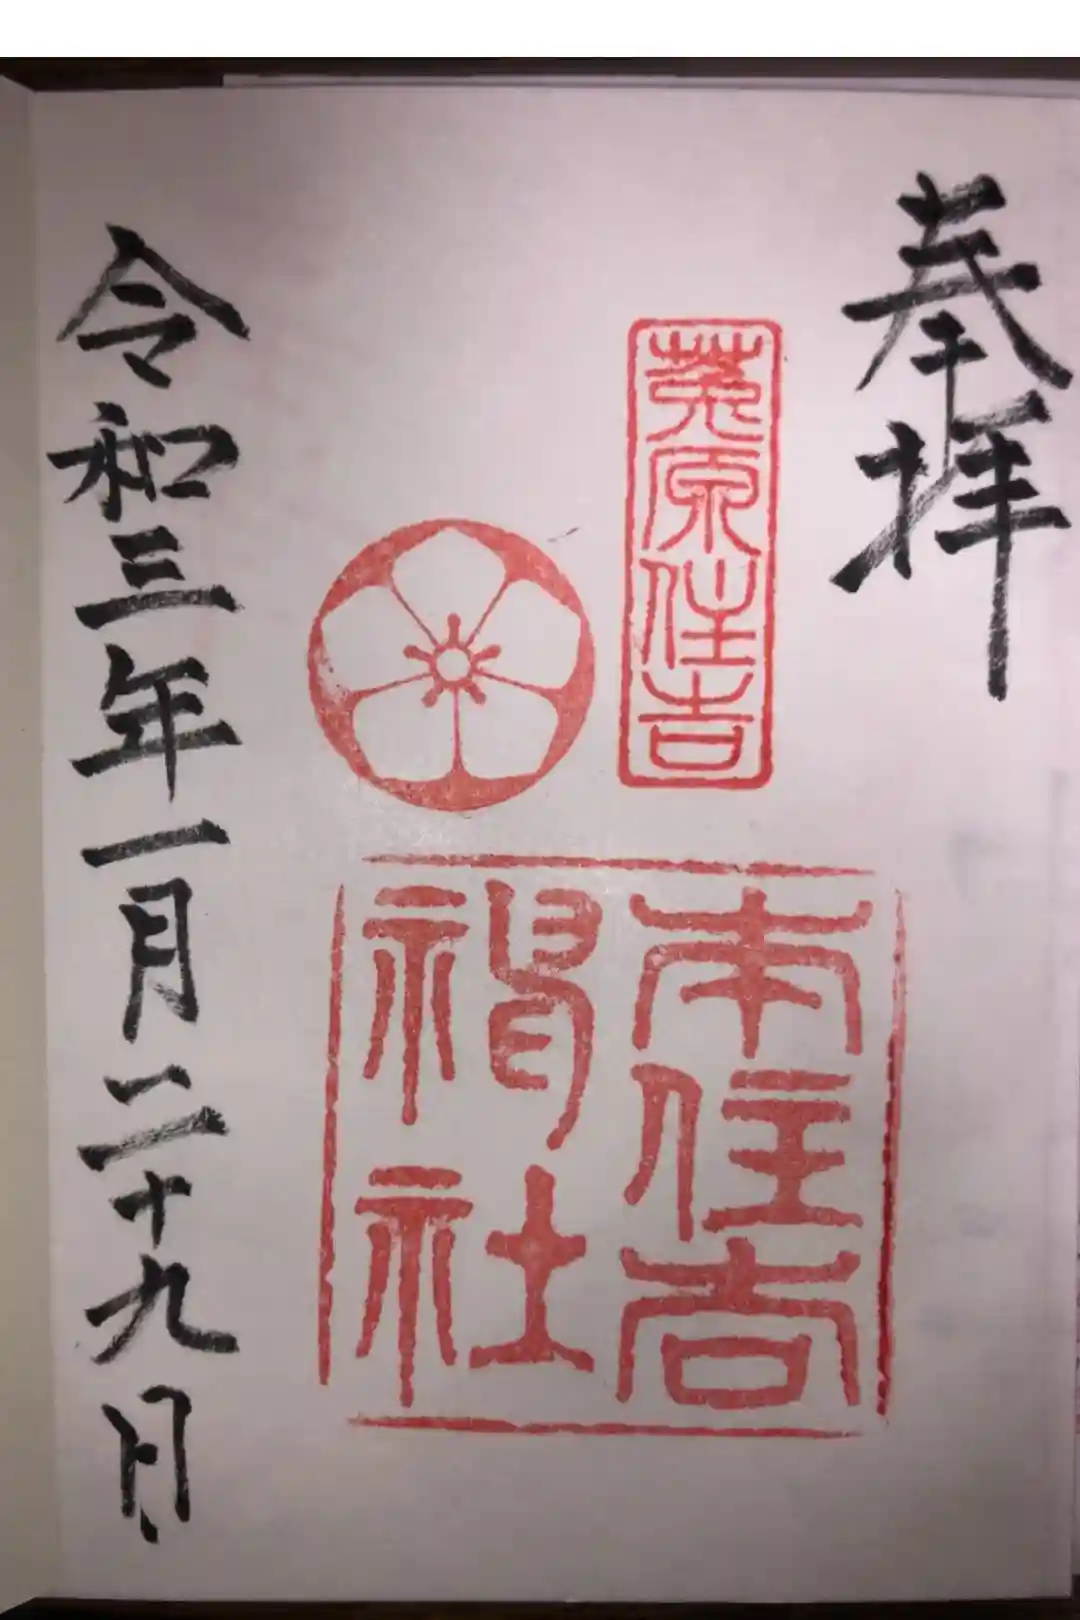 奉拝
菟原住吉
本住吉
神社
令和三年一月二十九日